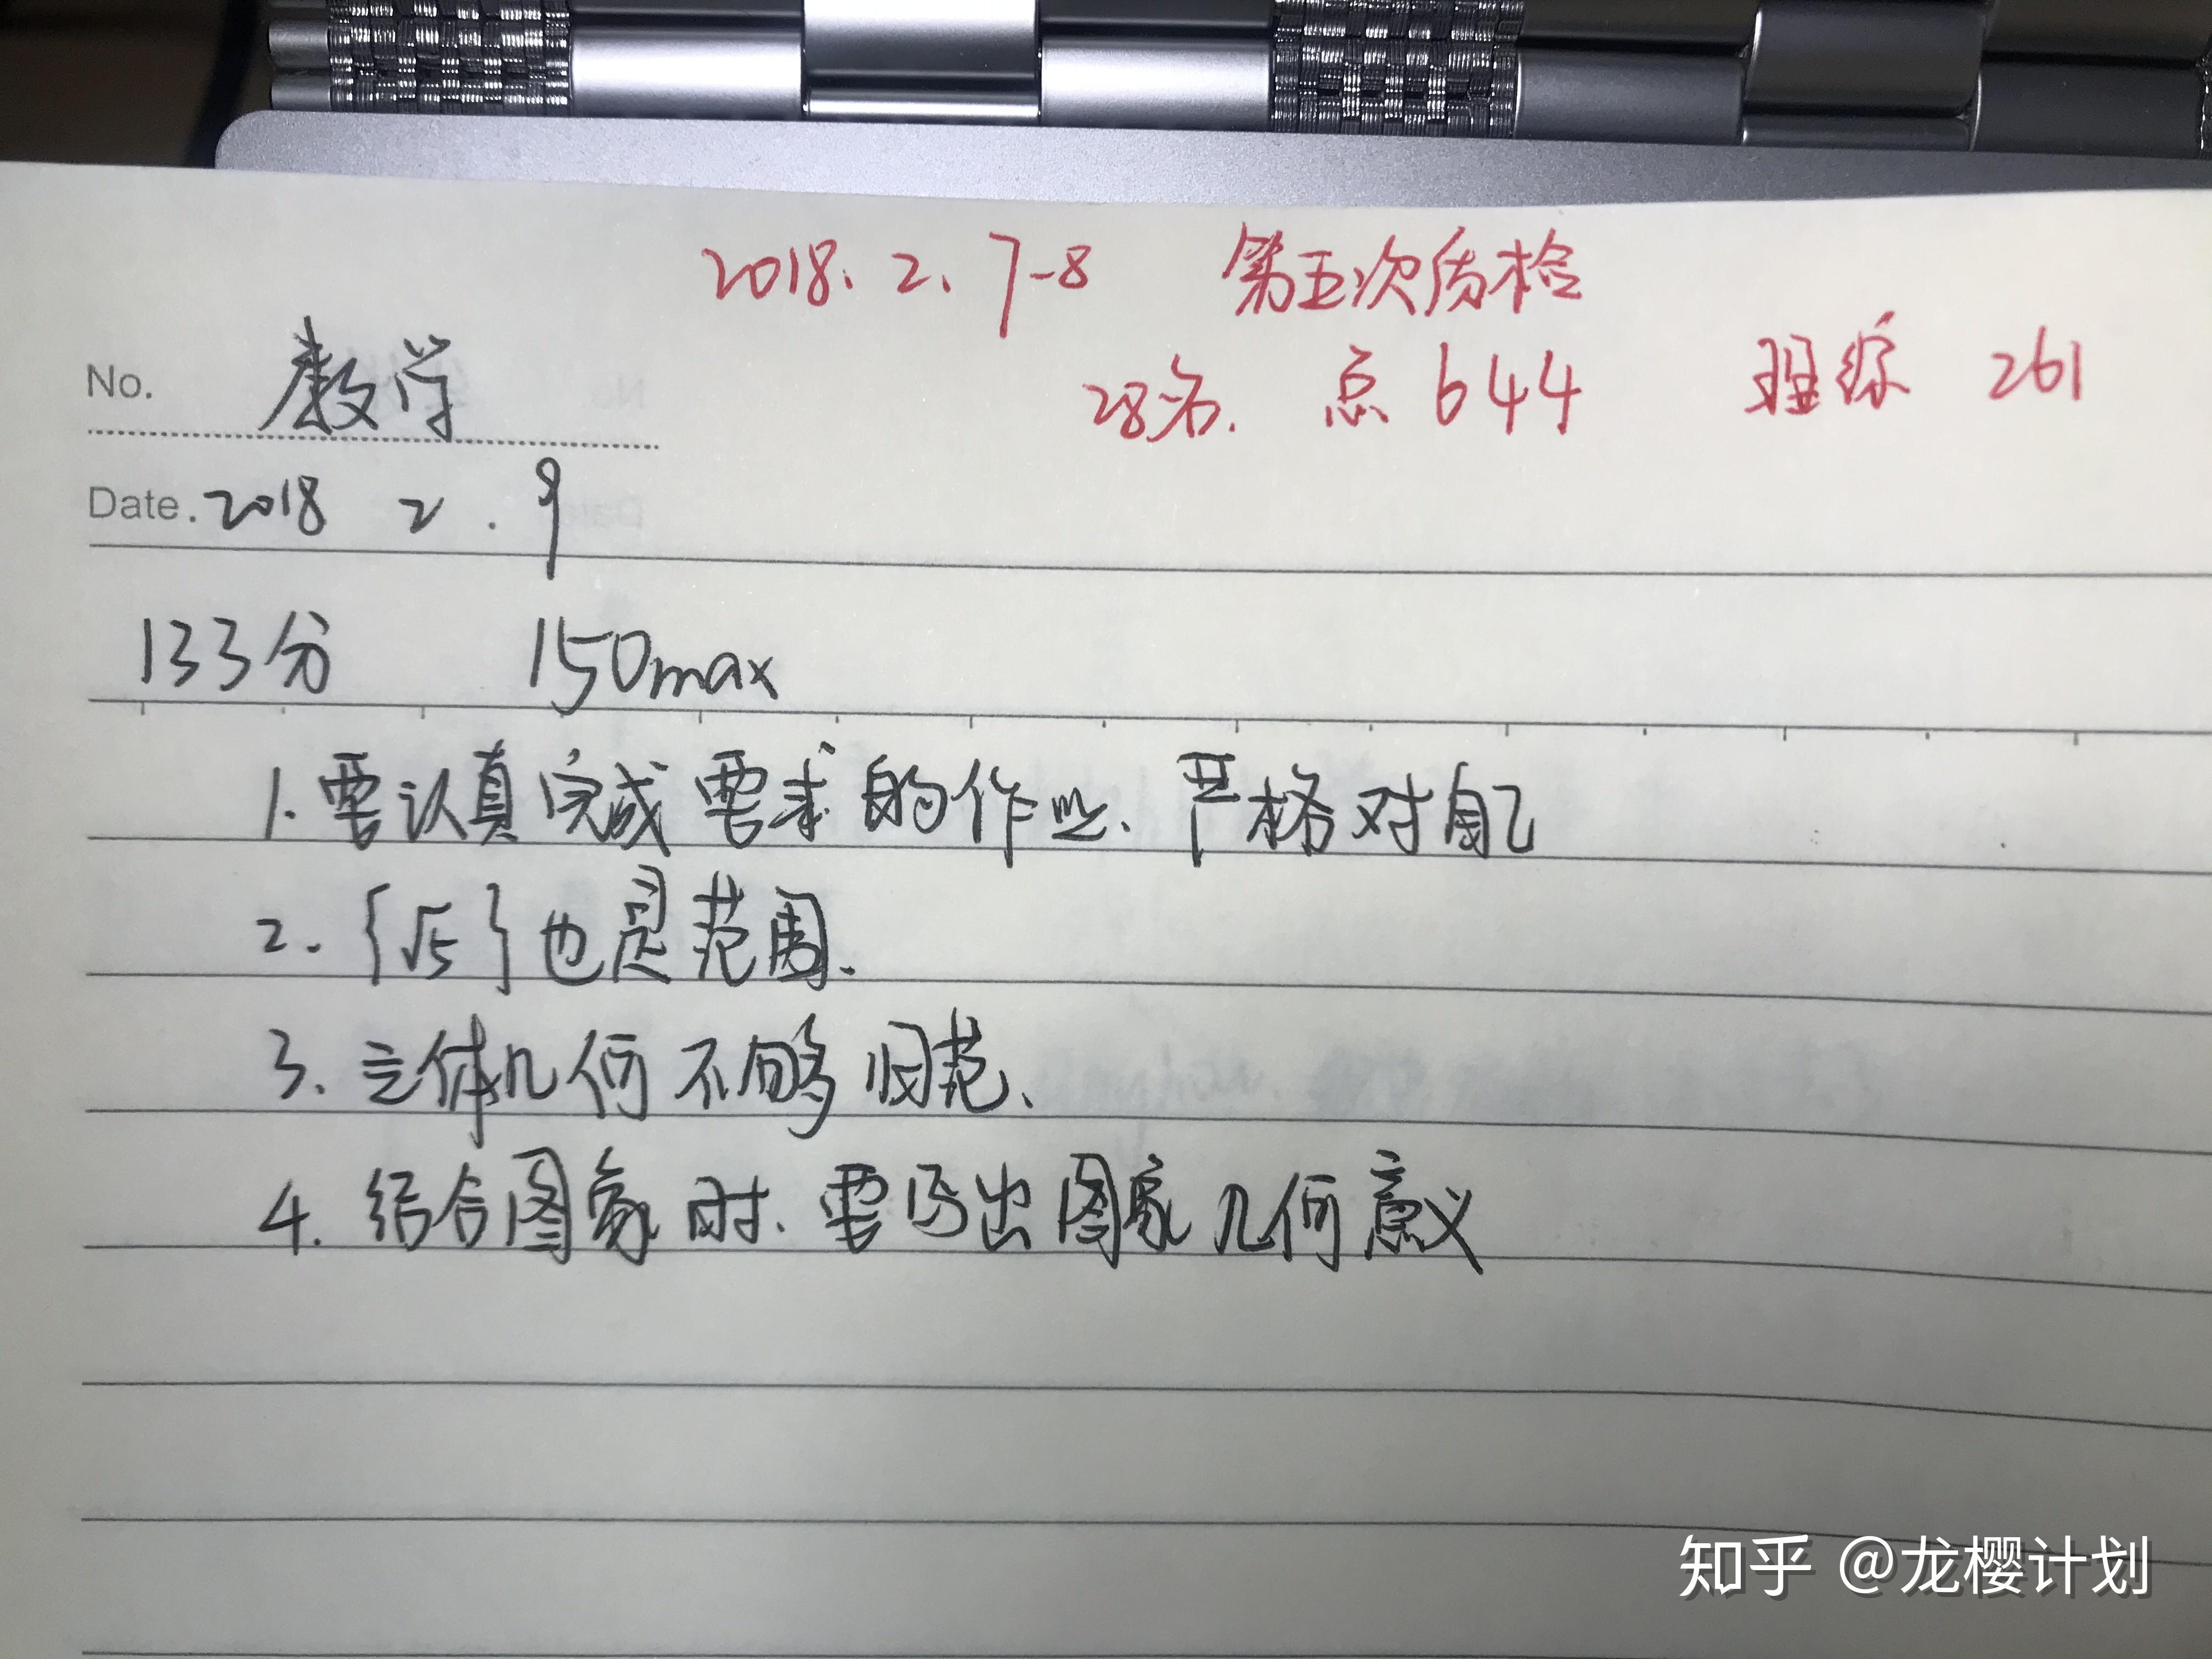 2018. 2. 7-8 第五次质检
28名. 总 644 理综 261
No. 数学
Date. 2018 2. 9
133分 150max
1. 要认真完成要求的作业、严格对自己
2. {√5}也是范围.
3. 立体几何不够规范、
4. 结合图象时、要写出图象几何意义
知乎 @龙樱计划